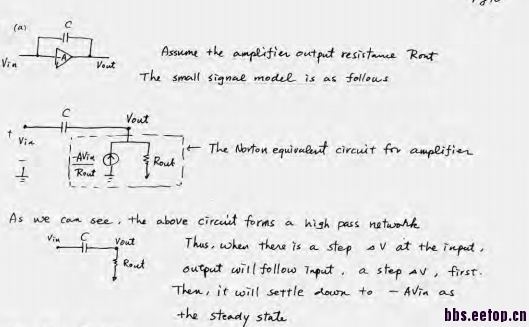 (a)
C
-A
Vin
Vout
Assume the amplifier output resistance Rout
The small signal model is as follows
C
Vout
+
Vin
-
-AVin
Rout
Rout
← The Norton equivalent circuit for amplifier
As we can see, the above circuit forms a high pass network
Vin
C
Vout
Rout
Thus, when there is a step ΔV at the input,
output will follow input, a step ΔV, first.
Then, it will settle down to -AVin as
the steady state
bbs.eetop.cn